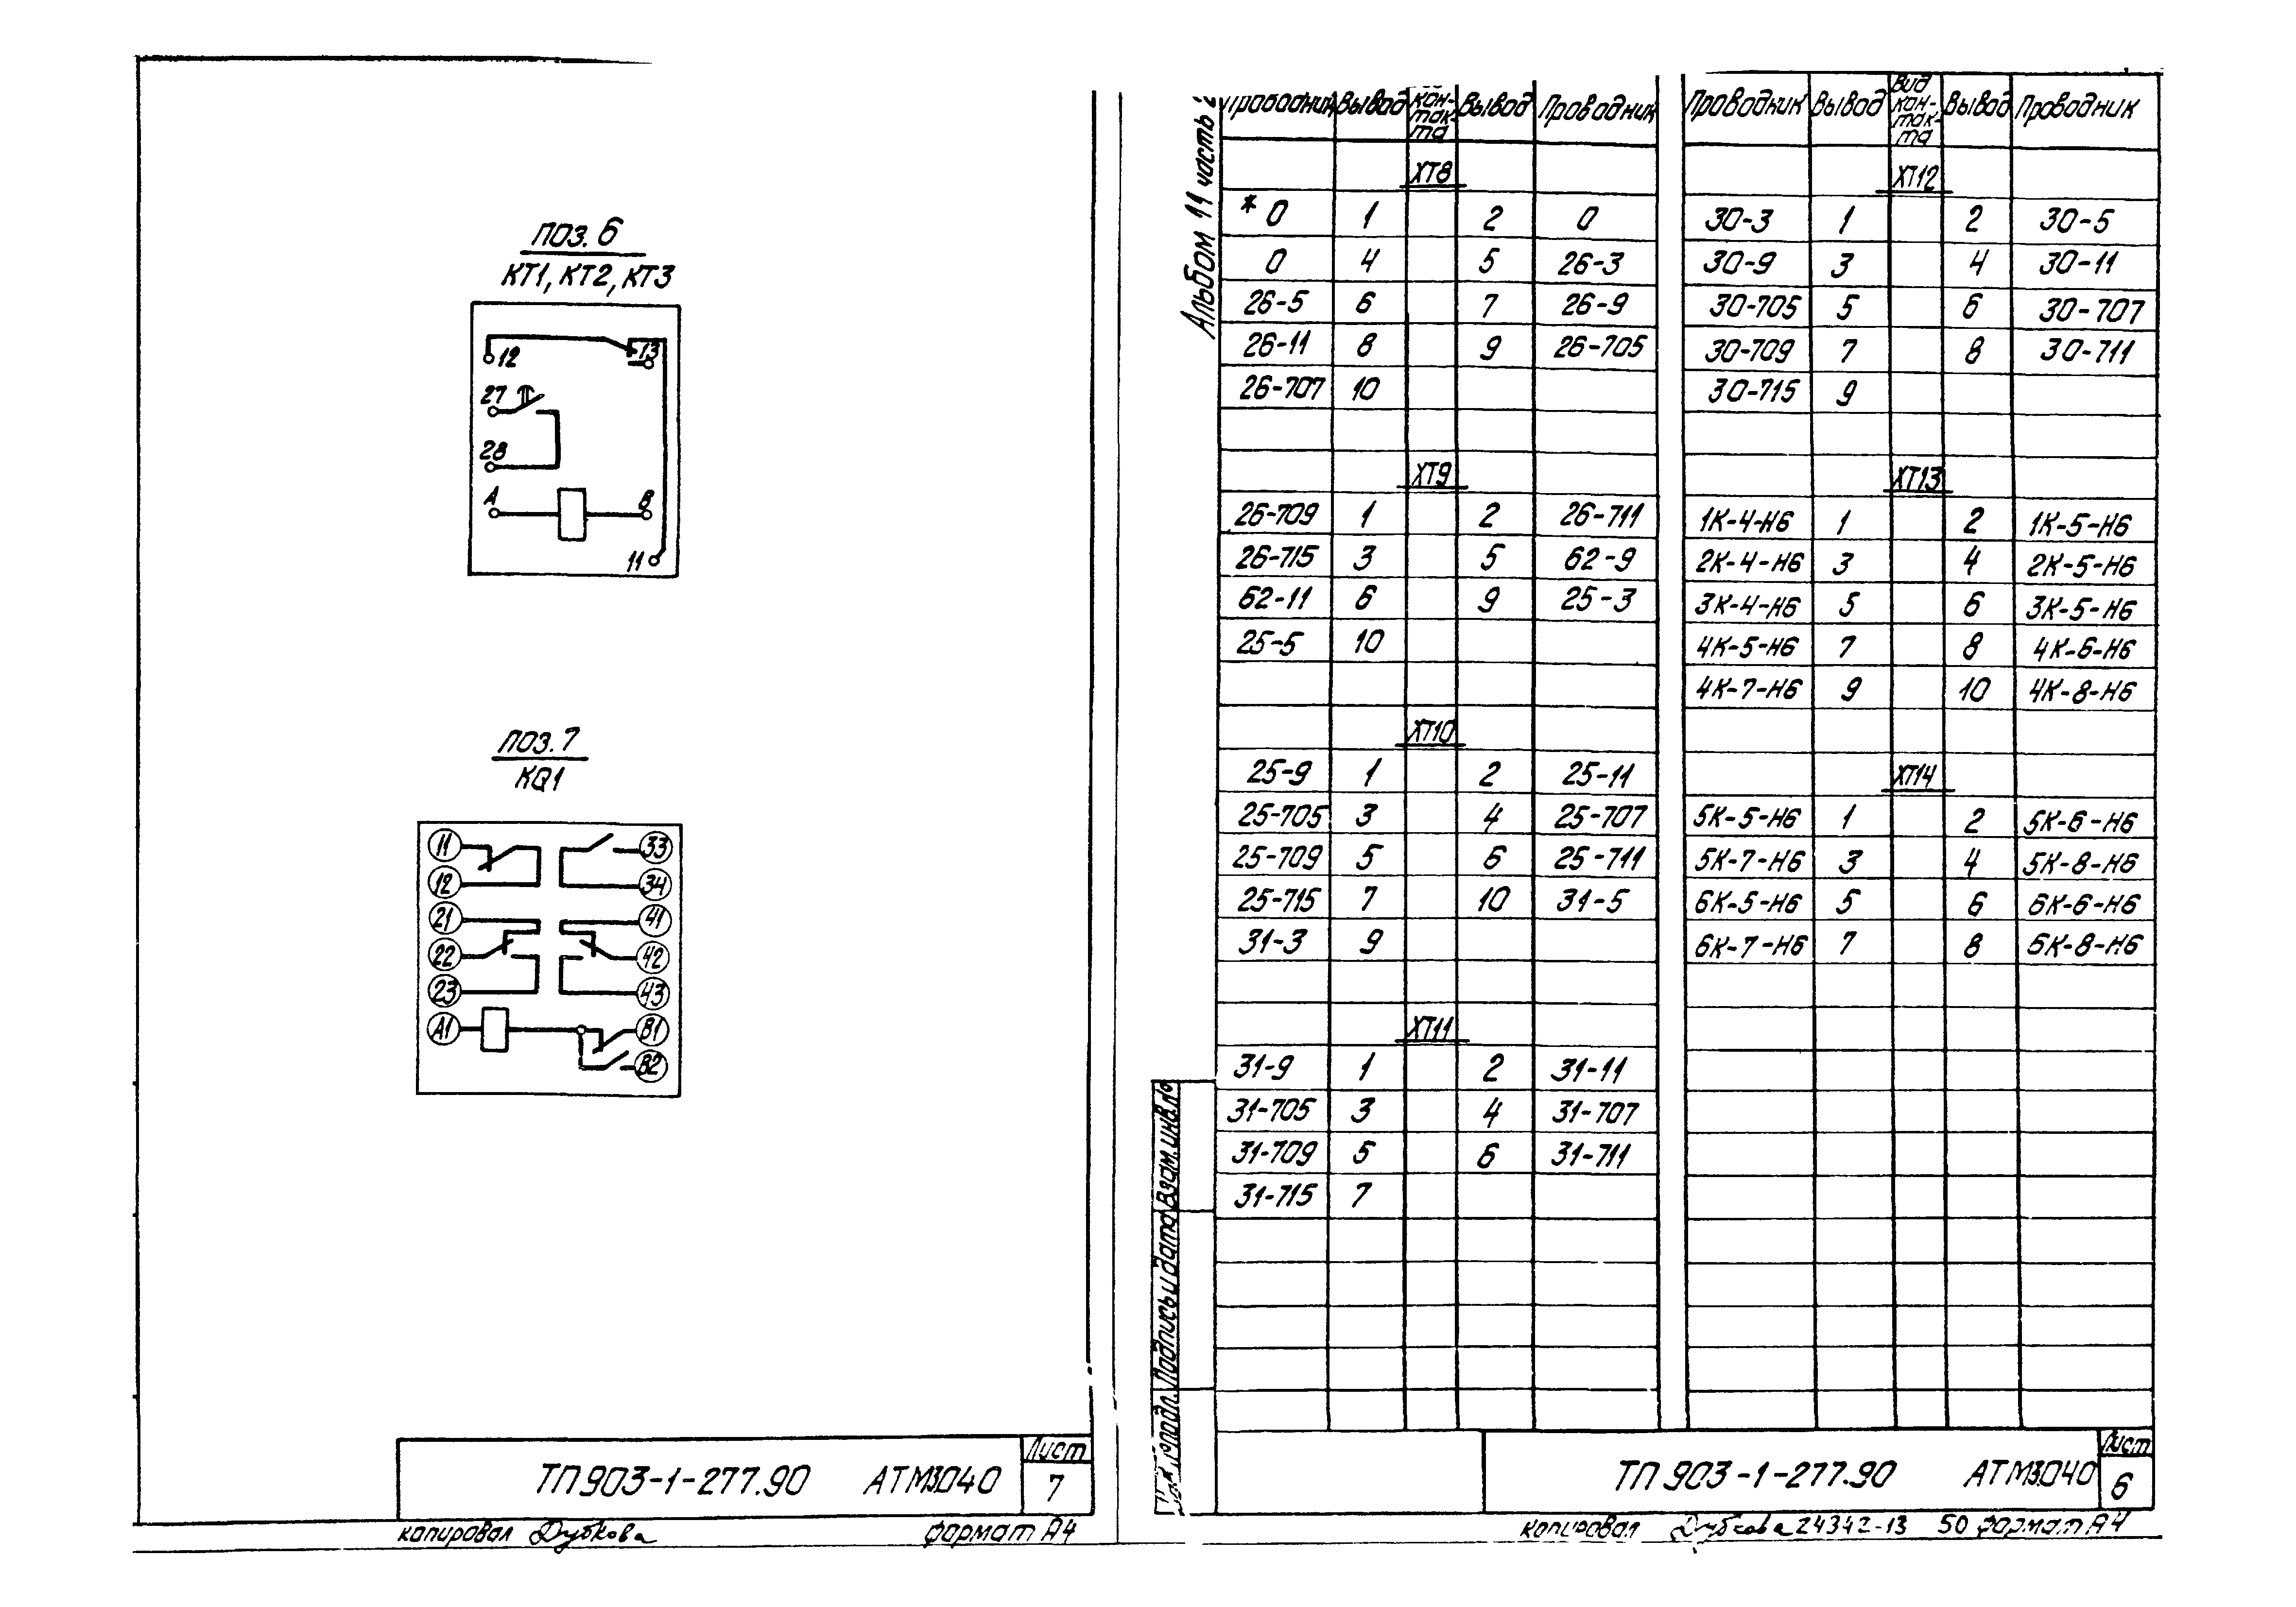 поз. 6
КТ1, КТ2, КТ3
12
13
27
28
А
В
11
поз. 7
KQ1
11
33
12
34
21
41
22
42
23
43
А1
В1
В2
ТП 903-1-277.90 АТМ3.040
Лист
7
копировал Дубкова формат А4
Альбом 11 часть 2
Проводник Вывод кон-так-та Вывод Проводник
ХТ8
* 0 1 2 0
0 4 5 26-3
26-5 6 7 26-9
26-11 8 9 26-705
26-707 10
ХТ9
26-709 1 2 26-711
26-715 3 5 62-9
62-11 6 9 25-3
25-5 10
ХТ10
25-9 1 2 25-11
25-705 3 4 25-707
25-709 5 6 25-711
25-715 7 10 31-5
31-3 9
ХТ11
31-9 1 2 31-11
31-705 3 4 31-707
31-709 5 6 31-711
31-715 7
Проводник Вывод Вид кон-так-та Вывод Проводник
ХТ12
30-3 1 2 30-5
30-9 3 4 30-11
30-705 5 6 30-707
30-709 7 8 30-711
30-715 9
ХТ13
1К-4-Н6 1 2 1К-5-Н6
2К-4-Н6 3 4 2К-5-Н6
3К-4-Н6 5 6 3К-5-Н6
4К-5-Н6 7 8 4К-6-Н6
4К-7-Н6 9 10 4К-8-Н6
ХТ14
5К-5-Н6 1 2 5К-6-Н6
5К-7-Н6 3 4 5К-8-Н6
6К-5-Н6 5 6 6К-6-Н6
6К-7-Н6 7 8 6К-8-Н6
Взам. инв. №
Подпись и дата
подл.
ТП 903-1-277.90 АТМ3.040
Лист
6
копировал Дубкова 24342-13 50 формат А4